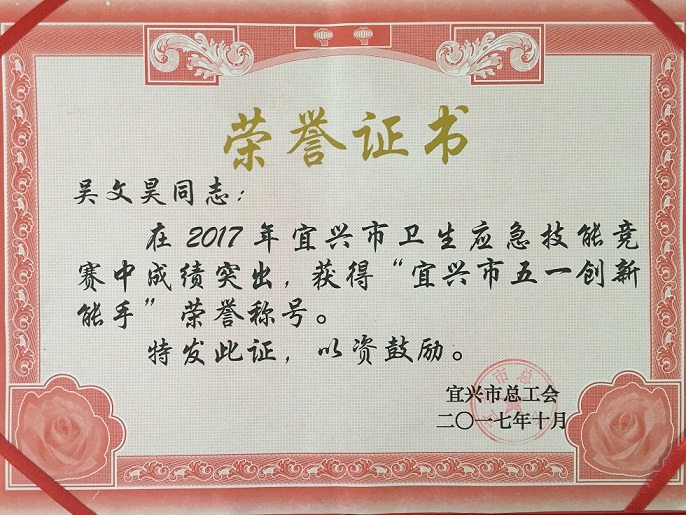 荣誉证书
吴文昊同志：
在2017年宜兴市卫生应急技能竞
赛中成绩突出，获得“宜兴市五一创新
能手”荣誉称号。
特发此证，以资鼓励。
宜兴市总工会
二〇一七年十月